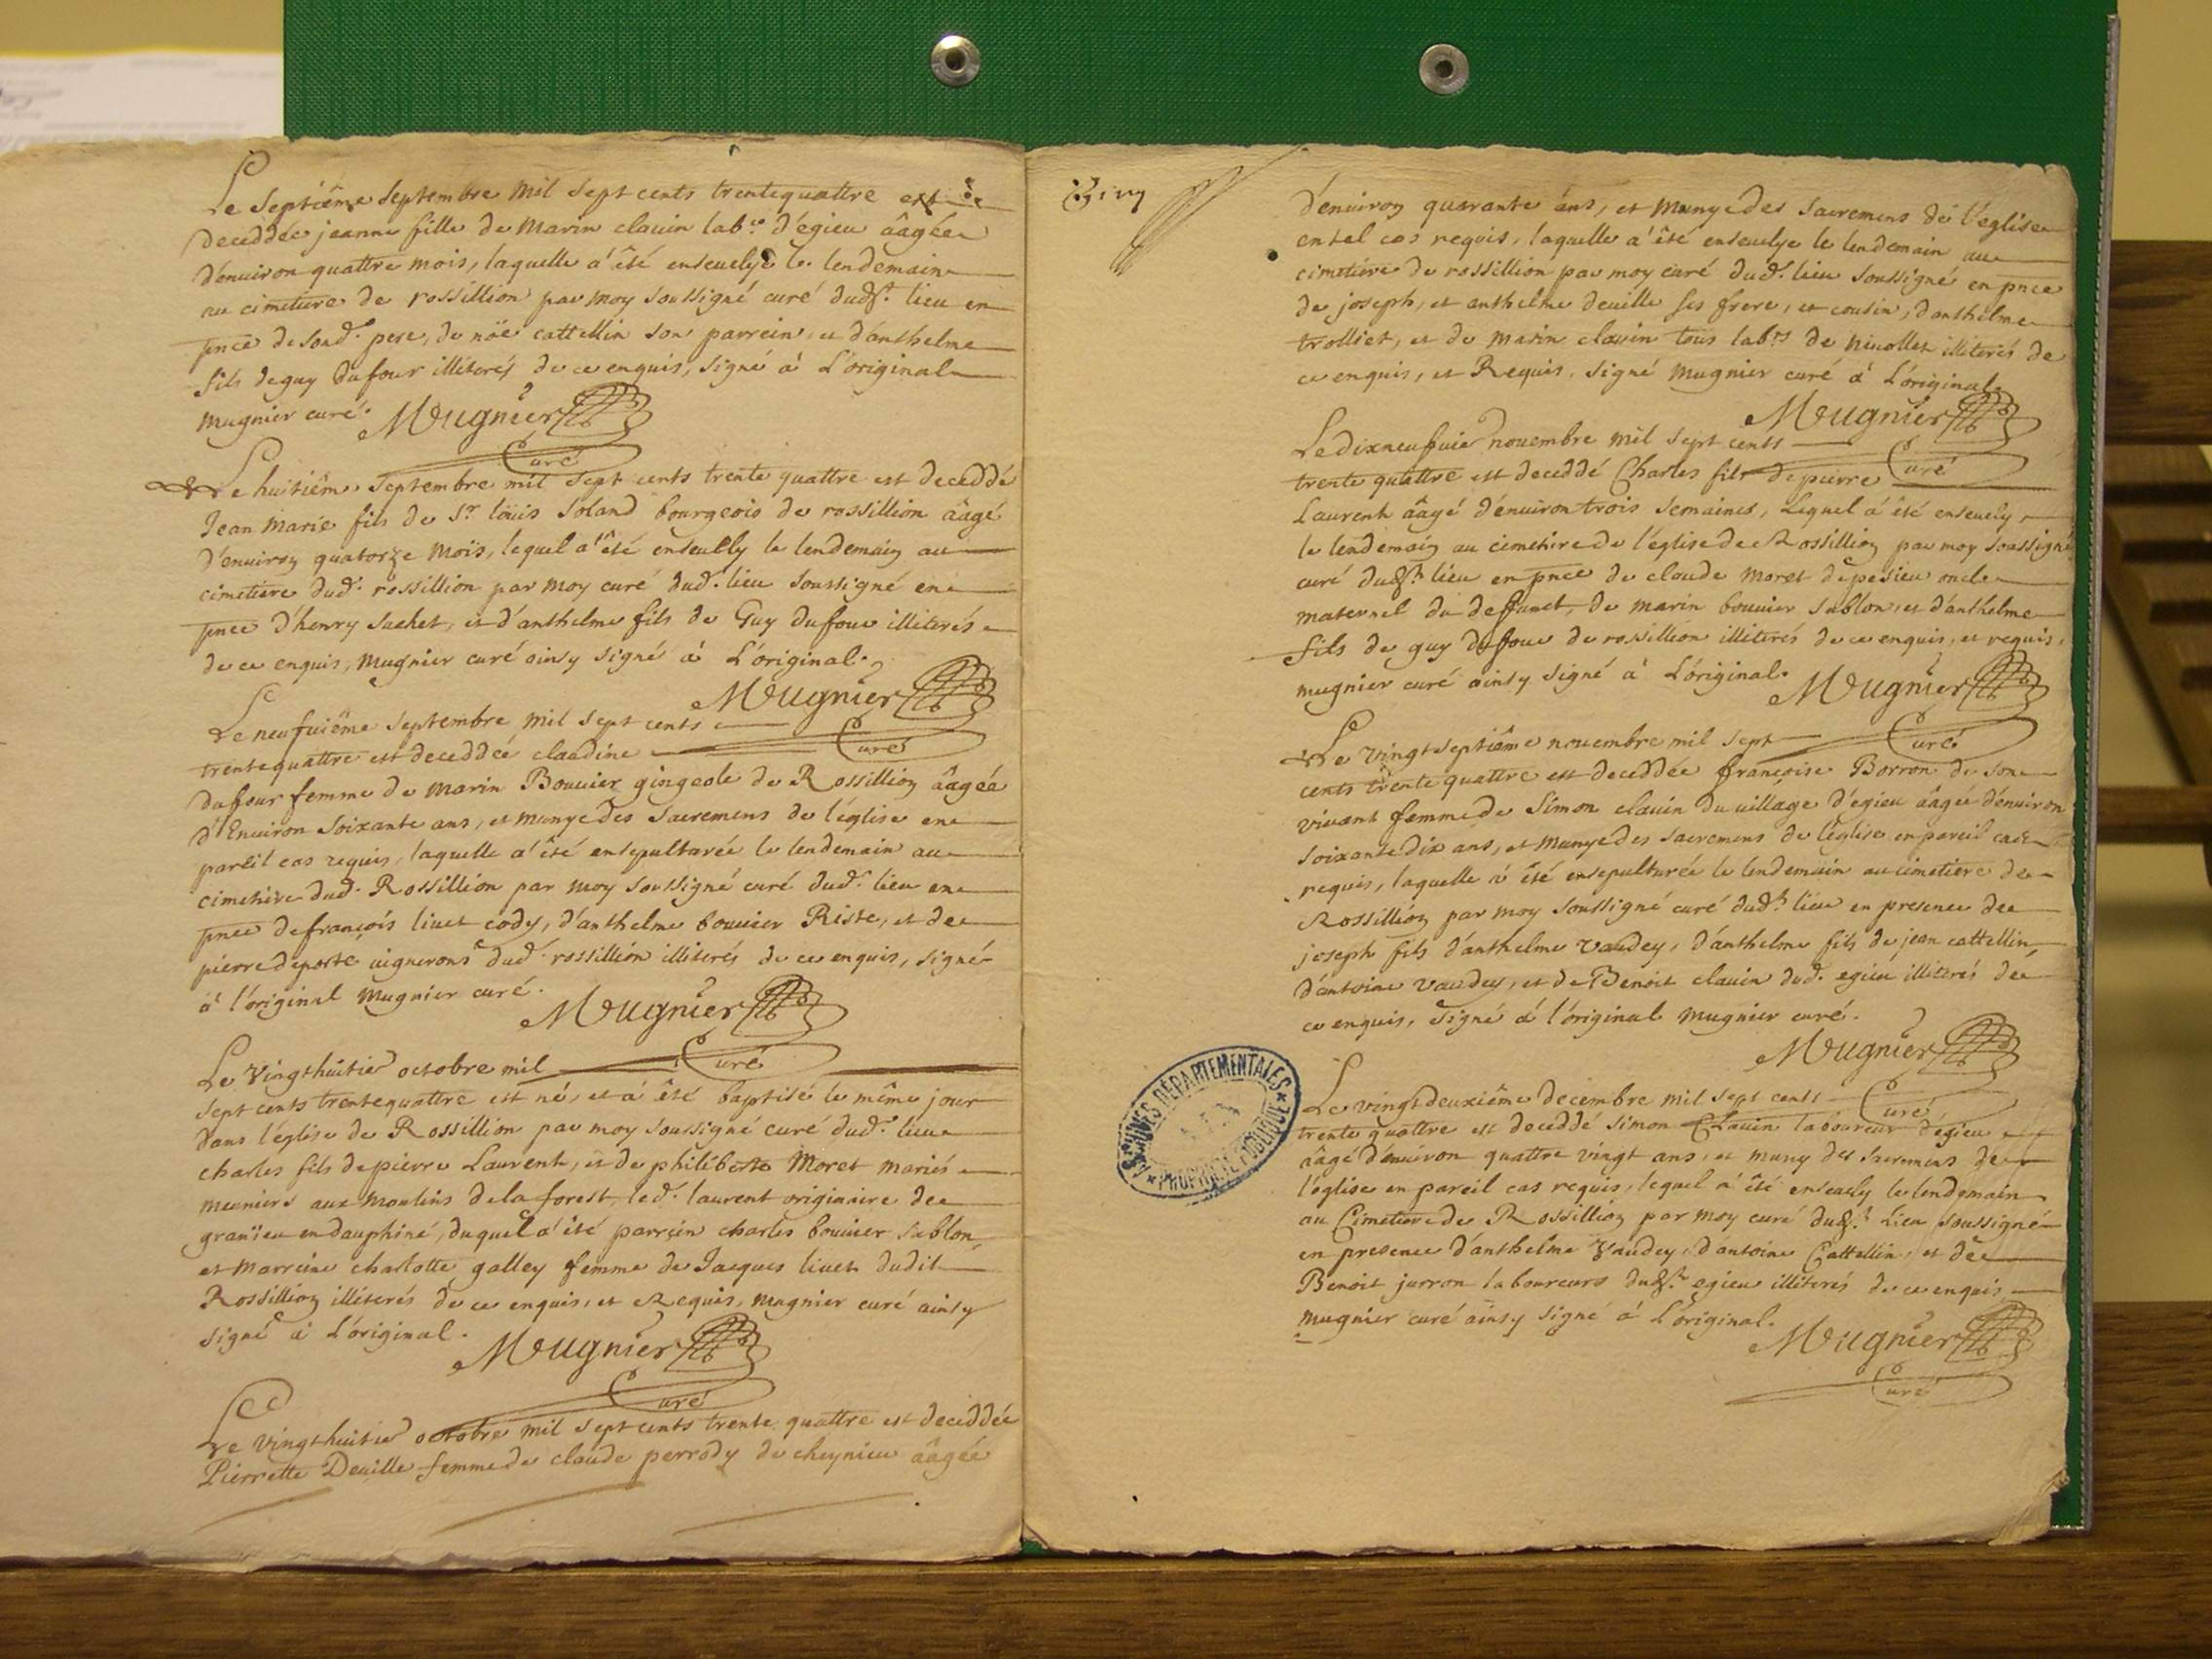 Le septiême septembre mil sept cents trentequattre est
deceddée jeanne fille de marin clavin lab.r d'égieu âagée
d'enuiron quattre mois, laquelle a' êté enseuelye le lendemain
au cimetiere de rossillion par moy soussigné curé dud.t lieu en
pnce de sond. pere, de nöe cattellin son parrein, et d'anthelme
fils de guy dufour illiterés de ce enquis, signé à L'original
mugnier curé. Mugnier
Curé
Le huitiême septembre mil sept cents trente quattre est deceddé
Jean Marie fils de Sr loüis Soland bourgeois de rossillion âagé
d'enuiron quatorze moïs, lequel a' êté enseuelly le lendemain au
cimetiere dud. rossillion par moy curé dud. lieu soussigné en
pnce d'henry Suchet, et d'anthelme fils de Guy dufour illiterés
de ce enquis, mugnier curé ainsy signé à L'original.
Mugnier
Le neufuiême septembre mil sept cents
Curé
trentequattre est deceddée claudine
dufour femme de marin Bouuier gingeole de Rossillion âagée
d'Enuiron soixante ans, et munye des Sacremens de l'église en
pareil cas requis, laquelle a' êté ensepulturée le lendemain au
cimetiere dud. Rossillion par moy soussigné curé dud. lieu en
pnce de françois liuet cody, d'anthelme bouuier Riste, et de
pierre deporte uignerons dud. rossillion illiterés de ce enquis, signé
à l'original mugnier curé.
Mugnier
Curé
Le Vingthuitie octobre mil
sept cents trentequattre est né, et a' êté baptisé le même jour
dans l'église de Rossillion par moy soussigné curé dud. lieu
charles fils de pierre Laurent, et de philiberte Moret mariés
meuniers aux moulins de la forest, led. laurent originaire de
granieu en dauphiné, duquel a' été parrein charles bouuier sablon,
et marreine charlotte galley femme de Jacques liuet dudit
Rossillion illiterés de ce enquis, et Requis, mugnier curé ainsy
signé à L'original.
Mugnier
Curé
Le vingthuitie octobre mil sept cents trente quattre est deceddée
Pierrette Deuille femme de claude perrody de cheynieu âagée
d'enuiron quarante ans, et munye des sacremens de l'église
en tel cas requis, laquelle a' êté enseuelye le lendemain au
cimetiere de rossillion par moy curé dud. lieu soussigné en pnce
de joseph, et anthelme deuille ses frere, et cousin, d'anthelme
trolliet, et de marin clavin tous lab.rs de niuollet illiterés de
ce enquis, et Requis, signé mugnier curé à L'original.
Mugnier
Le dixneufuie nouembre mil sept cents
Curé
trente quattre est deceddé Charles fils de pierre
Laurent âagé d'enuiron trois semaines, Lequel a êté enseuely
le lendemain au cimetiere de l'église de Rossillion par moy soussigné
curé dud.t lieu en pnce de claude moret de pesieu oncle
maternel du deffunct, de marin bouuier sablon, et d'anthelme
fils de guy dufour de rossillion illiterés de ce enquis, et requis,
mugnier curé ainsy signé à L'original.
Mugnier
Curé
Le vingtseptiême nouembre mil sept
cents trente quattre est deceddée françoise Borron de son
viuant femme de Simon clavin du uillage d'égieu âagée d'enuiron
soixante dix ans, et munye des sacremens de l'église en pareil cas
requis, laquelle a êté ensepulturée le lendemain au cimetiere de
Rossillion par moy soussigné curé dud.t lieu en presence de
joseph fils d'anthelme Vaudey, d'anthelme fils de jean cattellin,
d'antoine vaudey, et de Benoit clavin dud. egieu illiterés de
ce enquis, signé à l'original mugnier curé.
Mugnier
Curé
Le vingtdeuxiême decembre mil sept cents
trente quattre est deceddé Simon Clavin laboureur d'égieu
âagé d'enuiron quattre vingt ans, et muny des sacremens de
l'église en pareil cas requis, lequel a' êté enseuely le lendemain
au Cimetiere de Rossillion par moy curé dud.t Lieu soussigné
en presence d'anthelme Vaudey, d'antoine Cattellin, et de
Benoit jurron laboureurs dud.t egieu illiterés de ce enquis
mugnier curé ainsy signé à L'original.
Mugnier
Curé
ARCHIVES DÉPARTEMENTALES
PROPRIÉTÉ PUBLIQUE